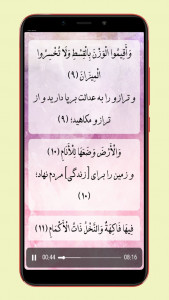 وَأَقِيمُوا الْوَزْنَ بِالْقِسْطِ وَلَا تُخْسِرُوا
الْمِيزَانَ (۹)
و ترازو را به عدالت برپا دارید و از
ترازو مکاهید؛ (۹)
وَالْأَرْضَ وَضَعَهَا لِلْأَنَامِ (۱۰)
و زمین را برای [زندگی] مردم نهاد؛
(۱۰)
فِيهَا فَاكِهَةٌ وَالنَّخْلُ ذَاتُ الْأَكْمَامِ (۱۱)
00:44
06:16